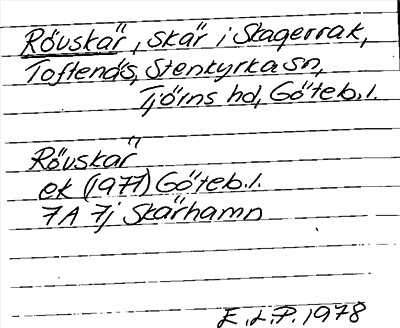 Rövskär, skär i Skagerrak,
Toftenäs, Stenkyrka sn,
Tjörns hd, Göteb. l.
Rövskär
ek (1977) Göteb. l.
7A 7j Skärhamn
E.L.P. 1978